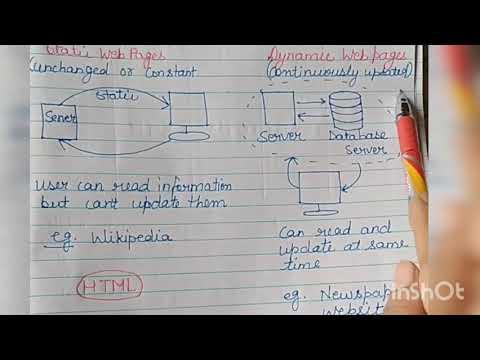 Static Web Pages
(unchanged or constant
static
Server
User can read information
but can't update them
eg. Wikipedia
HTML
Dynamic Web pages
(Continuously updated)
Server
Database
Server
Can read and
update at same
time
eg. Newspap
websit
InShOt